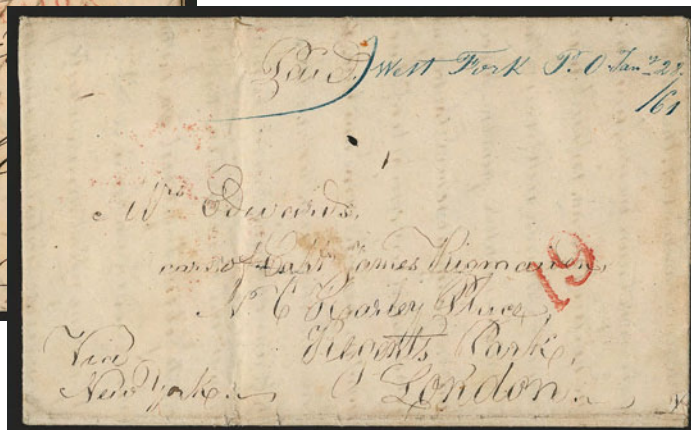 Paid West Fork P.O Jan.y 28
/61
Mrs Edwards,
care of James
Harley Place,
Regent's Park,
London.
Via
New York.
19